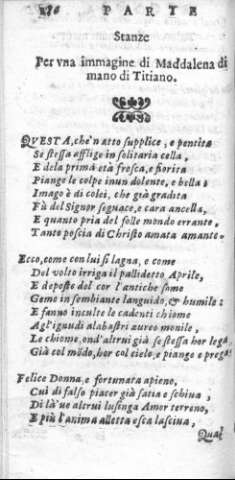 286 PARTE
Stanze
Per vna immagine di Maddalena di
mano di Titiano.
QVESTA, che'n atto supplice, e pentita
Se stessa afflige in solitaria cella,
E dela prima età fresca, e fiorita
Piange le colpe inun dolente, e bella:
Imago è di colei, che già gradita
Fù del Signor seguace, e cara ancella,
E quanto pria del folle mondo errante,
Tanto poscia di Christo amata amante.
Ecco, come con lui si lagna, e come
Del volto irriga il pallidetto Aprile,
E deposte del cor l'antiche some
Geme in sembiante languido, & humile:
E fanno inculte le cadenti chiome
Agl'ignudi alabastri aureo monile,
Le chiome, ond'altrui già se stessa hor lega
Già col mōdo, hor col cielo, e piange e prega.
Felice Donna, e fortunata apieno,
Cui di falso piacer già satia e schiua,
Di là've altrui lusinga Amor terreno,
E più l'anima alletta esca lasciua,
Qual